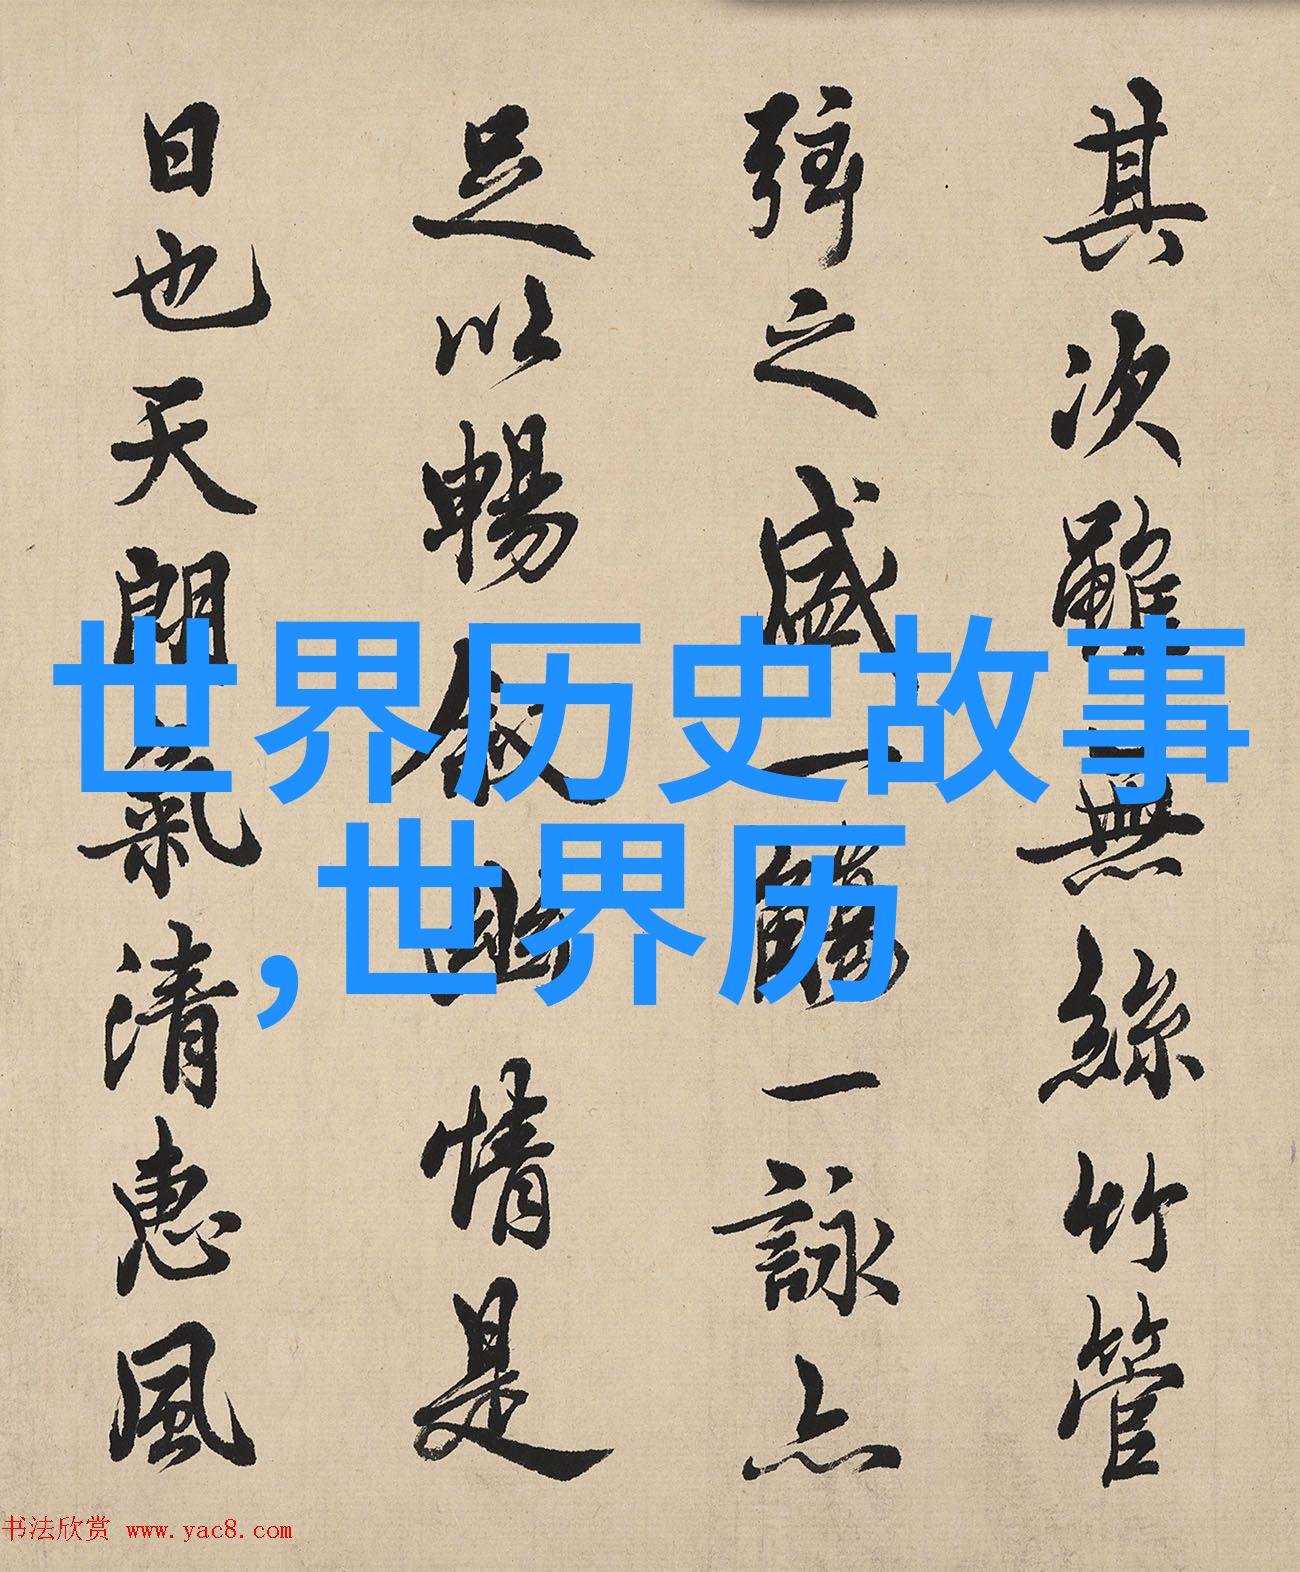 其次雖無絲竹管
弦之盛一觴一詠亦
足以暢叙幽情是
日也天朗氣清惠風
世界历史故事
,世界历
书法欣赏 www.yac8.com